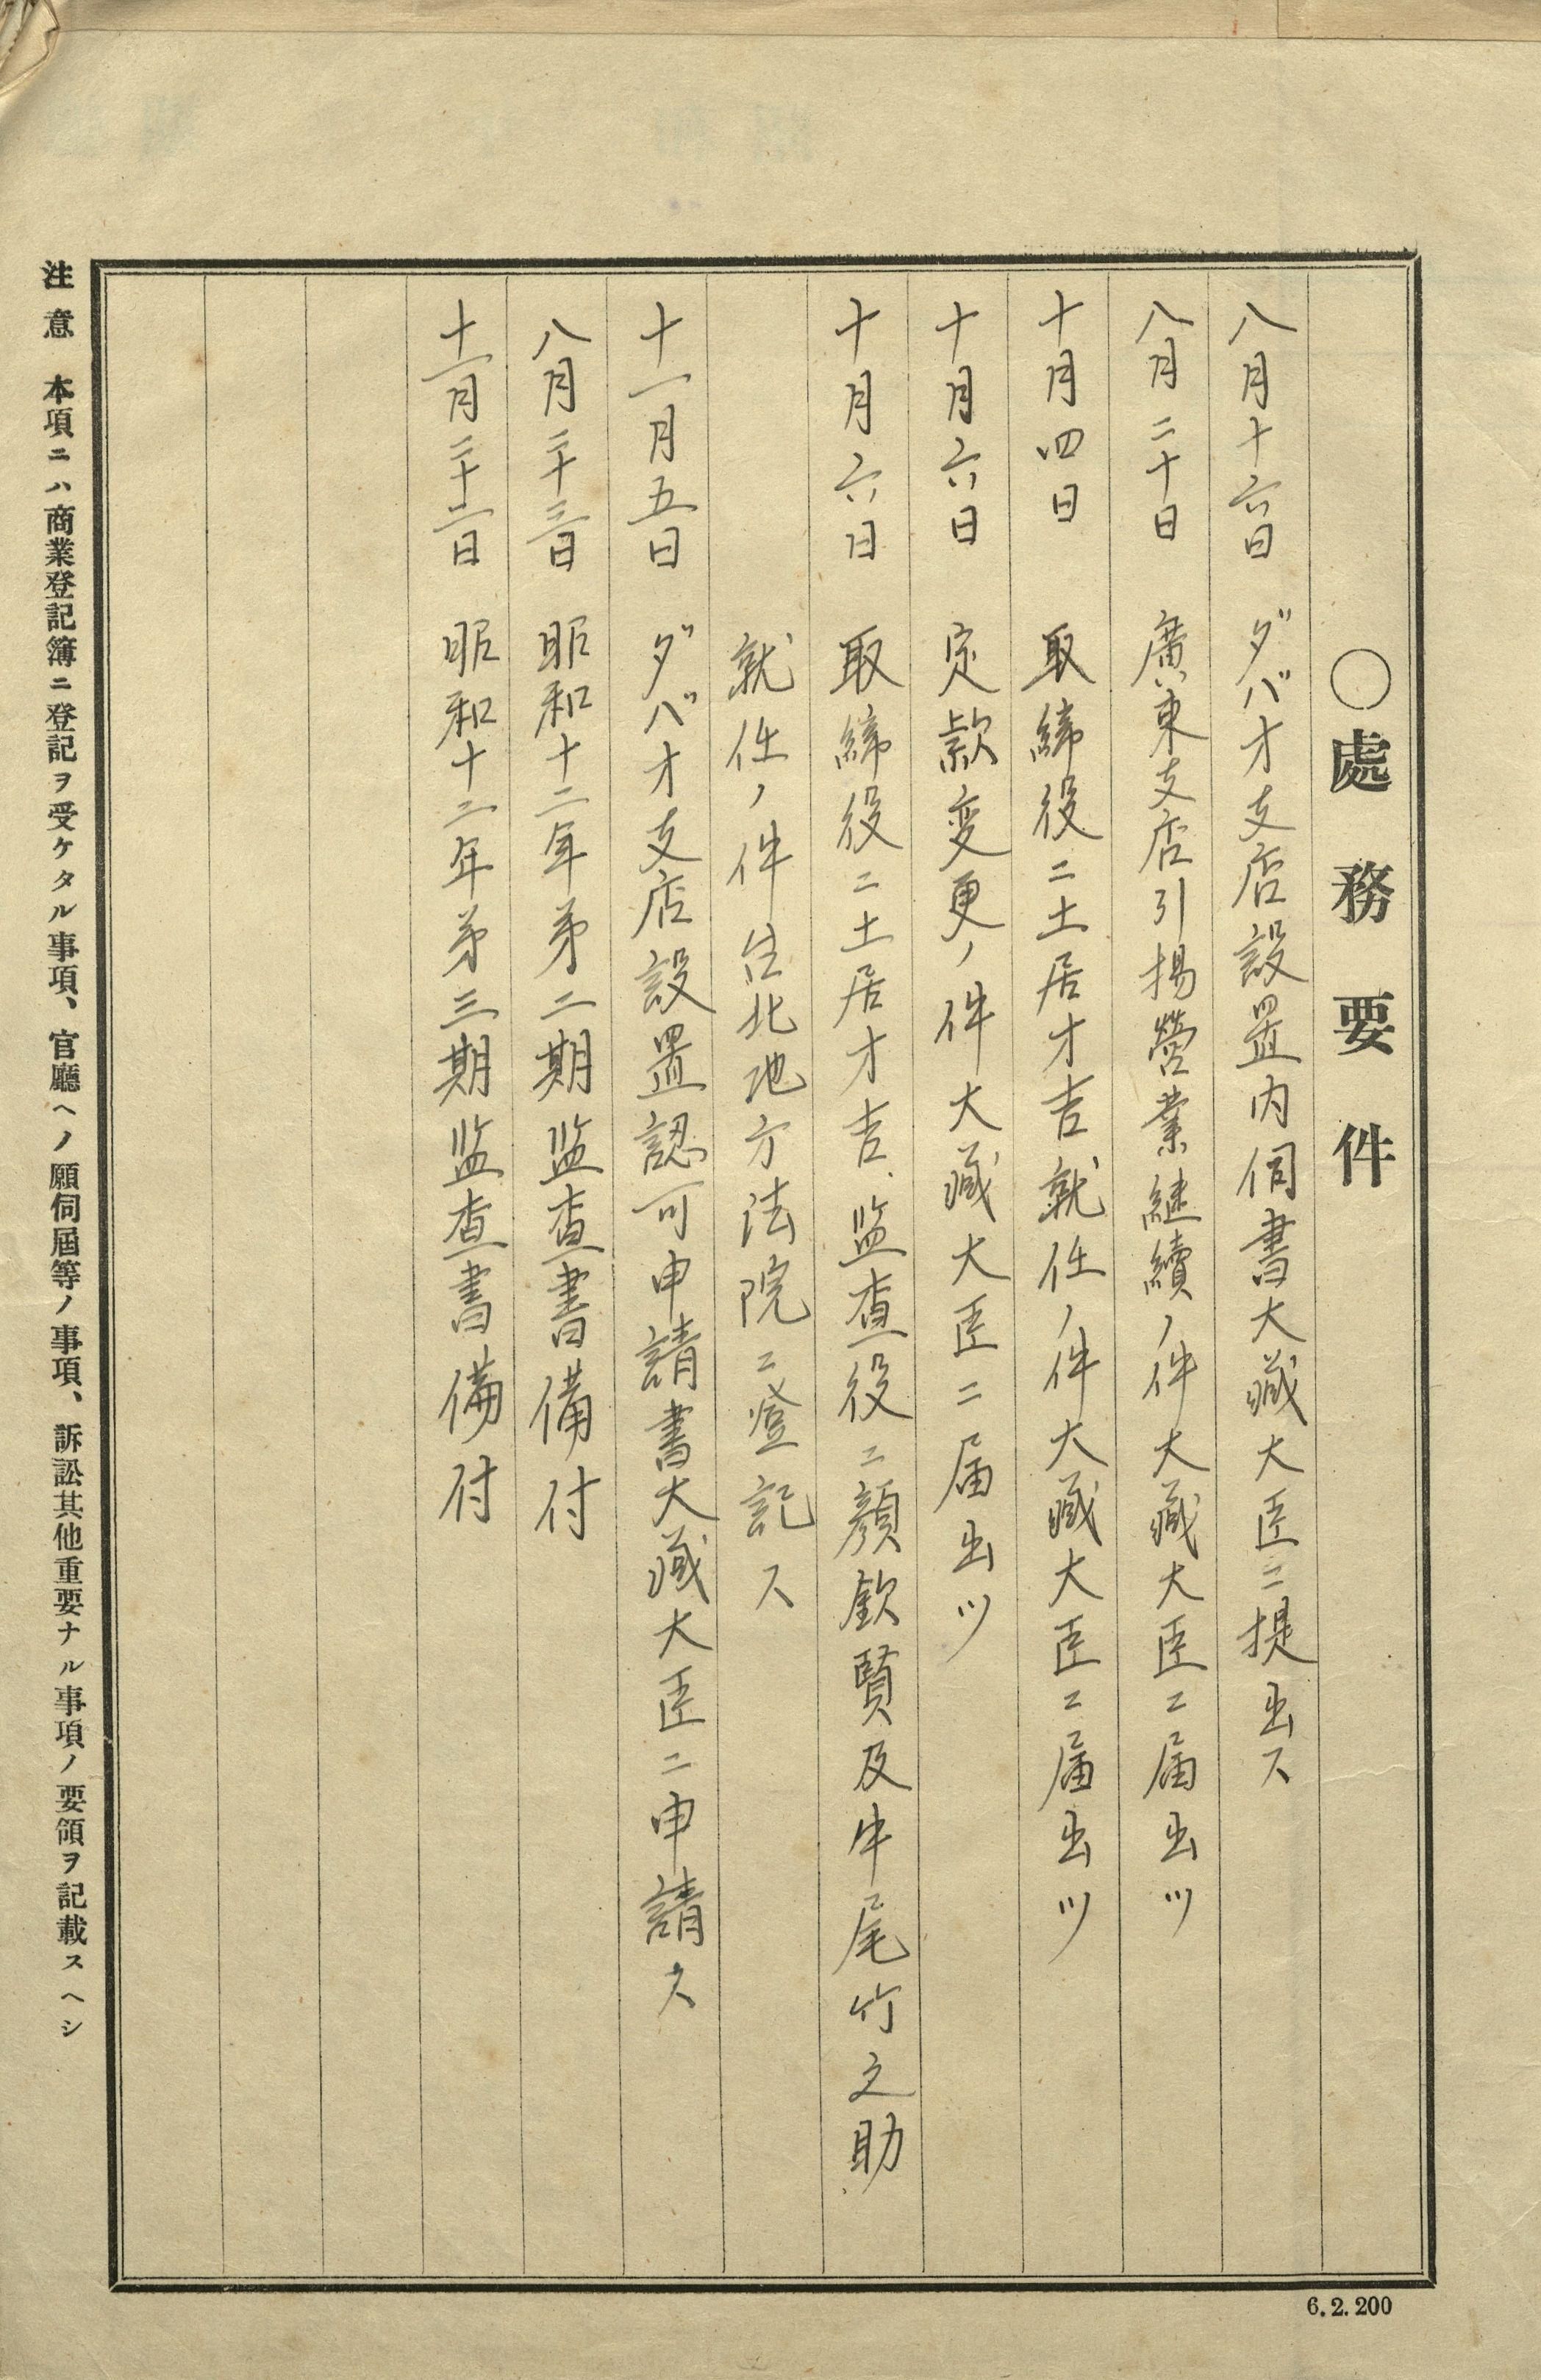 〇處務要件
八月十六日 ダバオ支店設置内伺書大藏大臣ニ提出ス
八月二十日 廣東支店引揚營業継續ノ件大藏大臣ニ届出ツ
十月四日 取締役ニ土居才吉就任ノ件大藏大臣ニ届出ツ
十月六日 定款変更ノ件大藏大臣ニ届出ツ
十月六日 取締役ニ土居才吉、監査役ニ顔欽賢及牛尾竹之助
就任ノ件台北地方法院ニ登記ス
十一月五日 ダバオ支店設置認可申請書大藏大臣ニ申請ス
八月二十三日 昭和十二年第二期監査書備付
十一月二十二日 昭和十二年第三期監査書備付
注意 本項ニハ商業登記簿ニ登記ヲ受ケタル事項、官廳ヘノ願伺屆等ノ事項、訴訟其他重要ナル事項ノ要領ヲ記載スヘシ
6.2.200